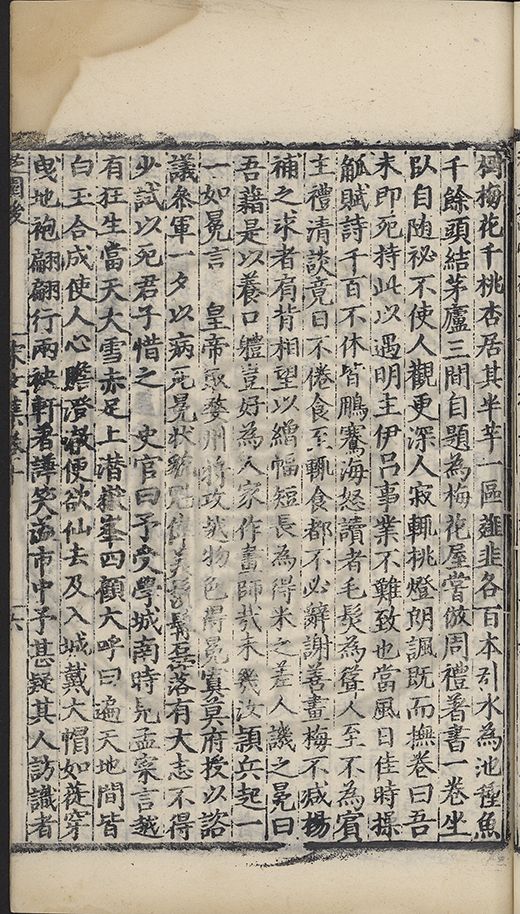 樹梅花千桃杏居其半芋一區薤韭各百本引水為池種魚
千餘頭結茅廬三間自題為梅花屋嘗倣周禮著書一卷坐
臥自随祕不使人觀更深人寂輒挑燈朗諷既而撫卷曰吾
未即死持此以遇明主伊呂事業不難致也當風日佳時操
觚賦詩千百不休皆鵬騫海怒讀者毛髮為聳人至不為賓
主禮清談竟日不倦食至輒食都不必辭謝善畫梅不減楊
補之求者肩背相望以繒幅短長為得米之差人譏之冕曰
吾藉是以養口體豈好為人家作畫師㢤未幾汝頴兵起一
一如冕言 皇帝取婺州將攻越物色得冕寘莫府授以諮
議叅軍一夕以病死冕狀貌魁偉美鬚髯磊落有大志不得
少試以死君子惜之 史官曰予受學城南時見孟寀言越
有狂生當天大雪赤足上潜嶽峯四顧大呼曰遍天地間皆
白玉合成使人心膽澄瑩便欲仙去及入城戴大帽如簁穿
曳地袍翩翩行兩袂軒翥譁笑溢市中予甚疑其人訪識者
芝園後 宋 集卷十 六